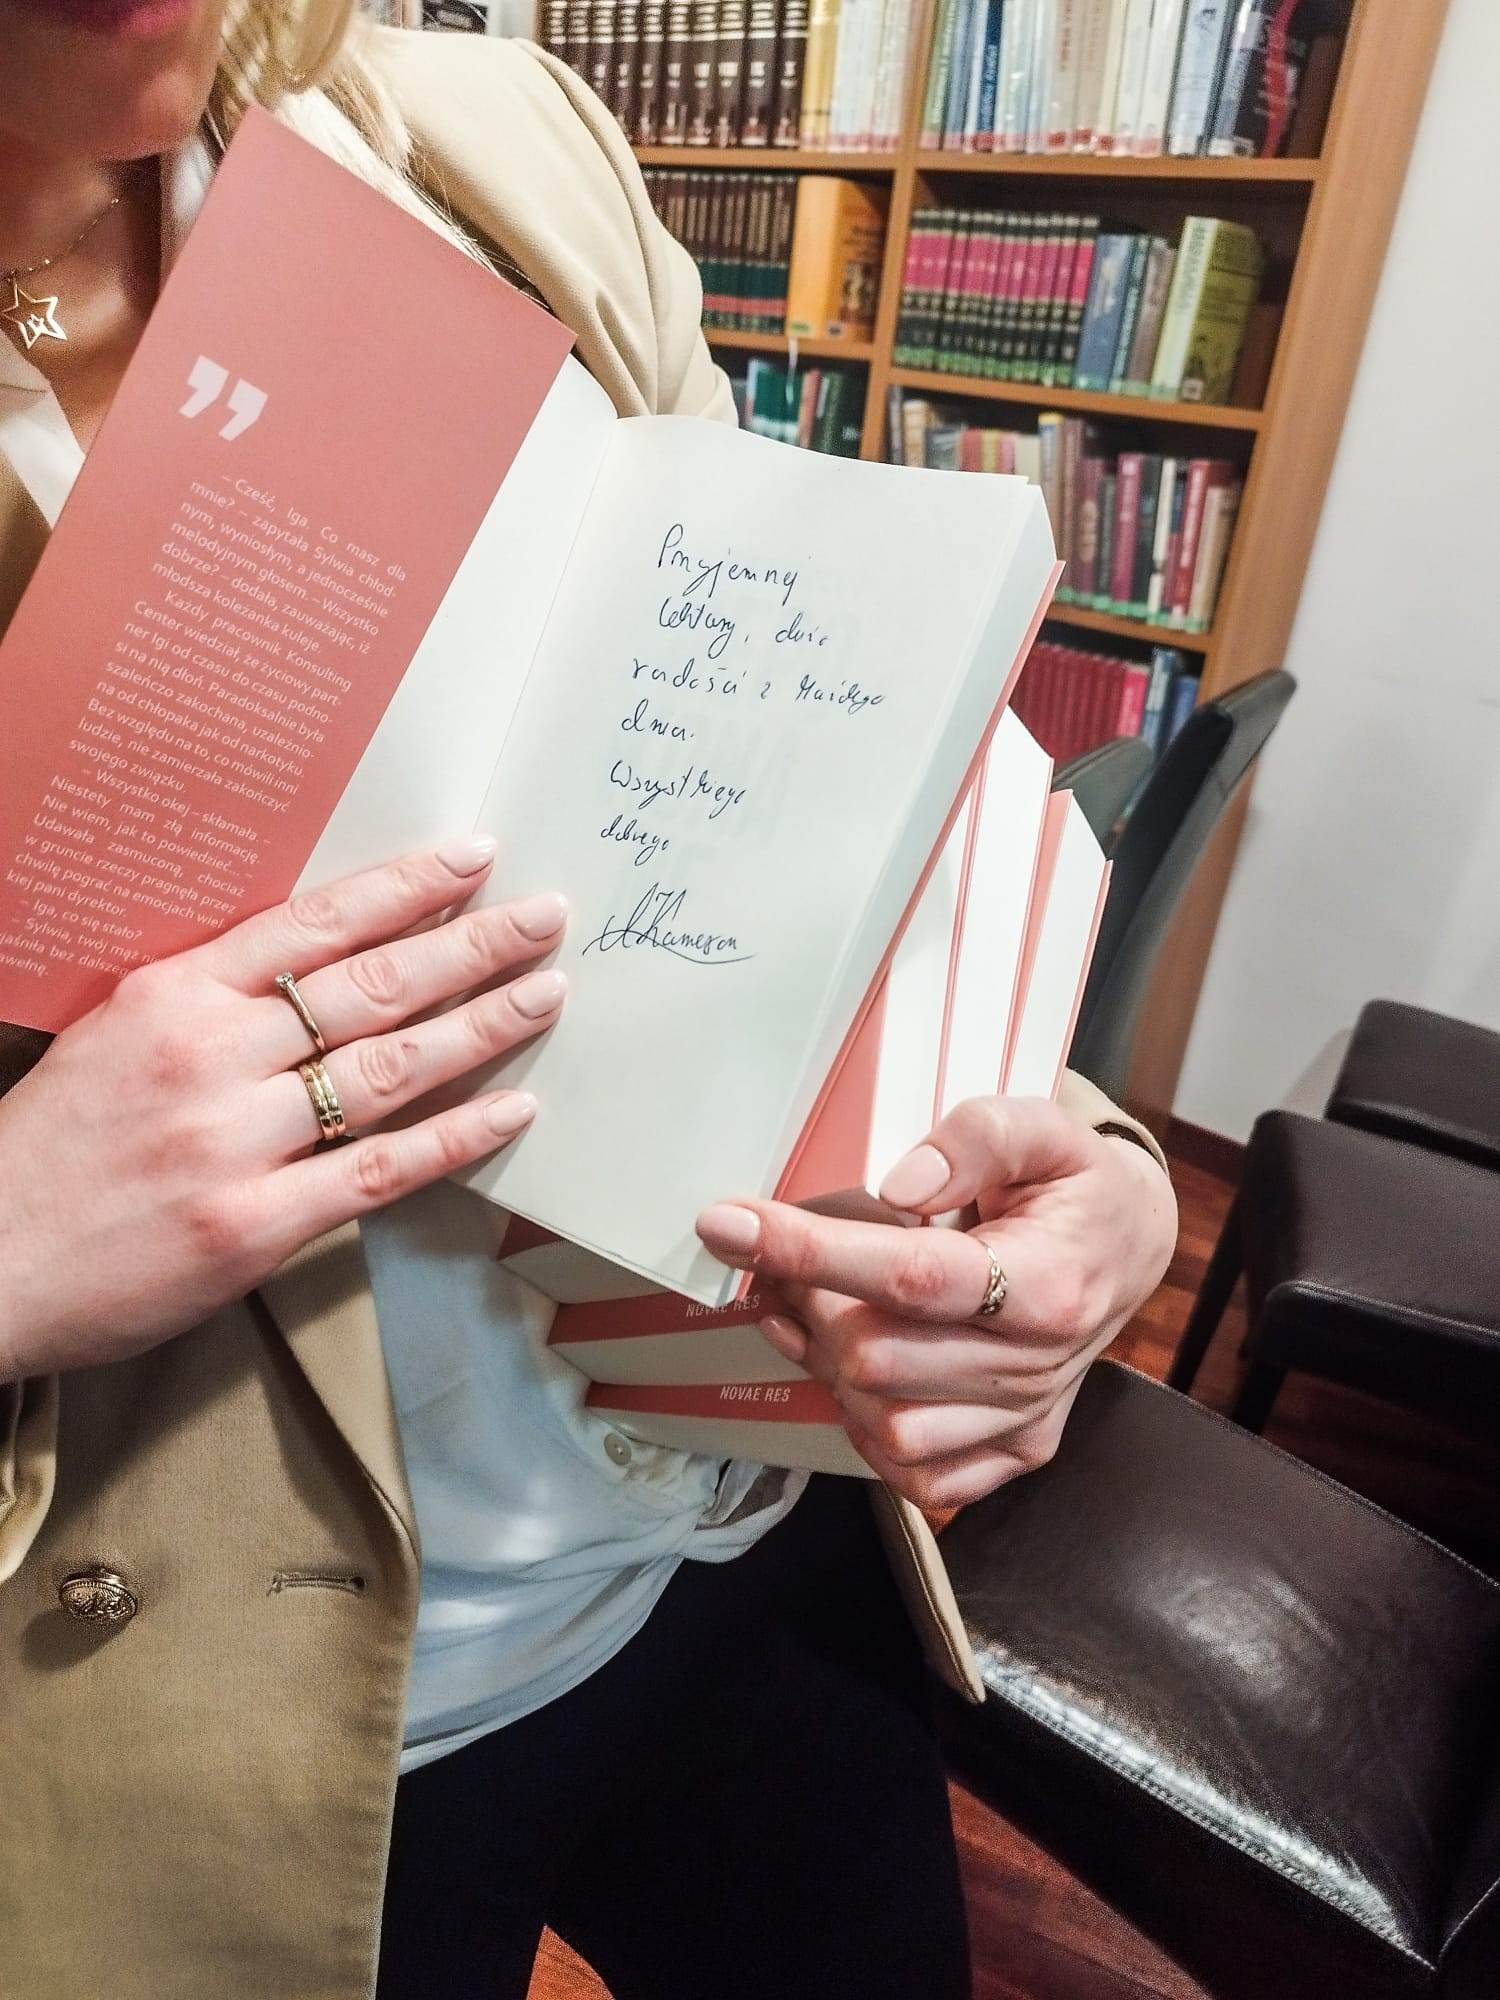 ”
– Cześć, Iga. Co masz dla
mnie? – zapytała Sylwia chłod-
nym, wyniosłym, a jednocześnie
melodyjnym głosem. – Wszystko
dobrze? – dodała, zauważając, iż
młodsza koleżanka kuleje.
Każdy pracownik Konsulting
Center wiedział, że życiowy part-
ner Igi od czasu do czasu podno-
si na nią dłoń. Paradoksalnie była
szaleńczo zakochana, uzależnio-
na od chłopaka jak od narkotyku.
Bez względu na to, co mówili inni
ludzie, nie zamierzała zakończyć
swojego związku.
– Wszystko okej – skłamała. –
Niestety mam złą informację.
Nie wiem, jak to powiedzieć... –
Udawała zasmuconą, chociaż
w gruncie rzeczy pragnęła przez
chwilę pograć na emocjach wiel-
kiej pani dyrektor.
– Iga, co się stało?
– Sylwia, twój mąż
bez
Przyjemnej
lektury, dużo
radości z każdego
dnia.
Wszystkiego
dobrego
Kameron
NOVAE RES
NOVAE RES